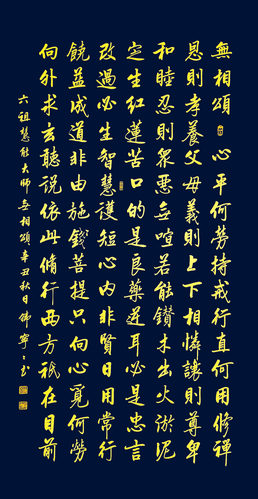 無相頌心平何勞持戒行直何用修禪
恩則孝養父母義則上下相憐讓則尊卑
和睦忍則眾惡无喧若能鑽木出火淤泥
定生紅蓮苦口的是良藥逆耳必是忠言
改過必生智慧護短心內非賢日用常行
饒益成道非由施錢菩提只向心覓何勞
向外求玄聽說依此修行西方祇在目前
六祖慧能大師无相頌辛丑秋日佛寧